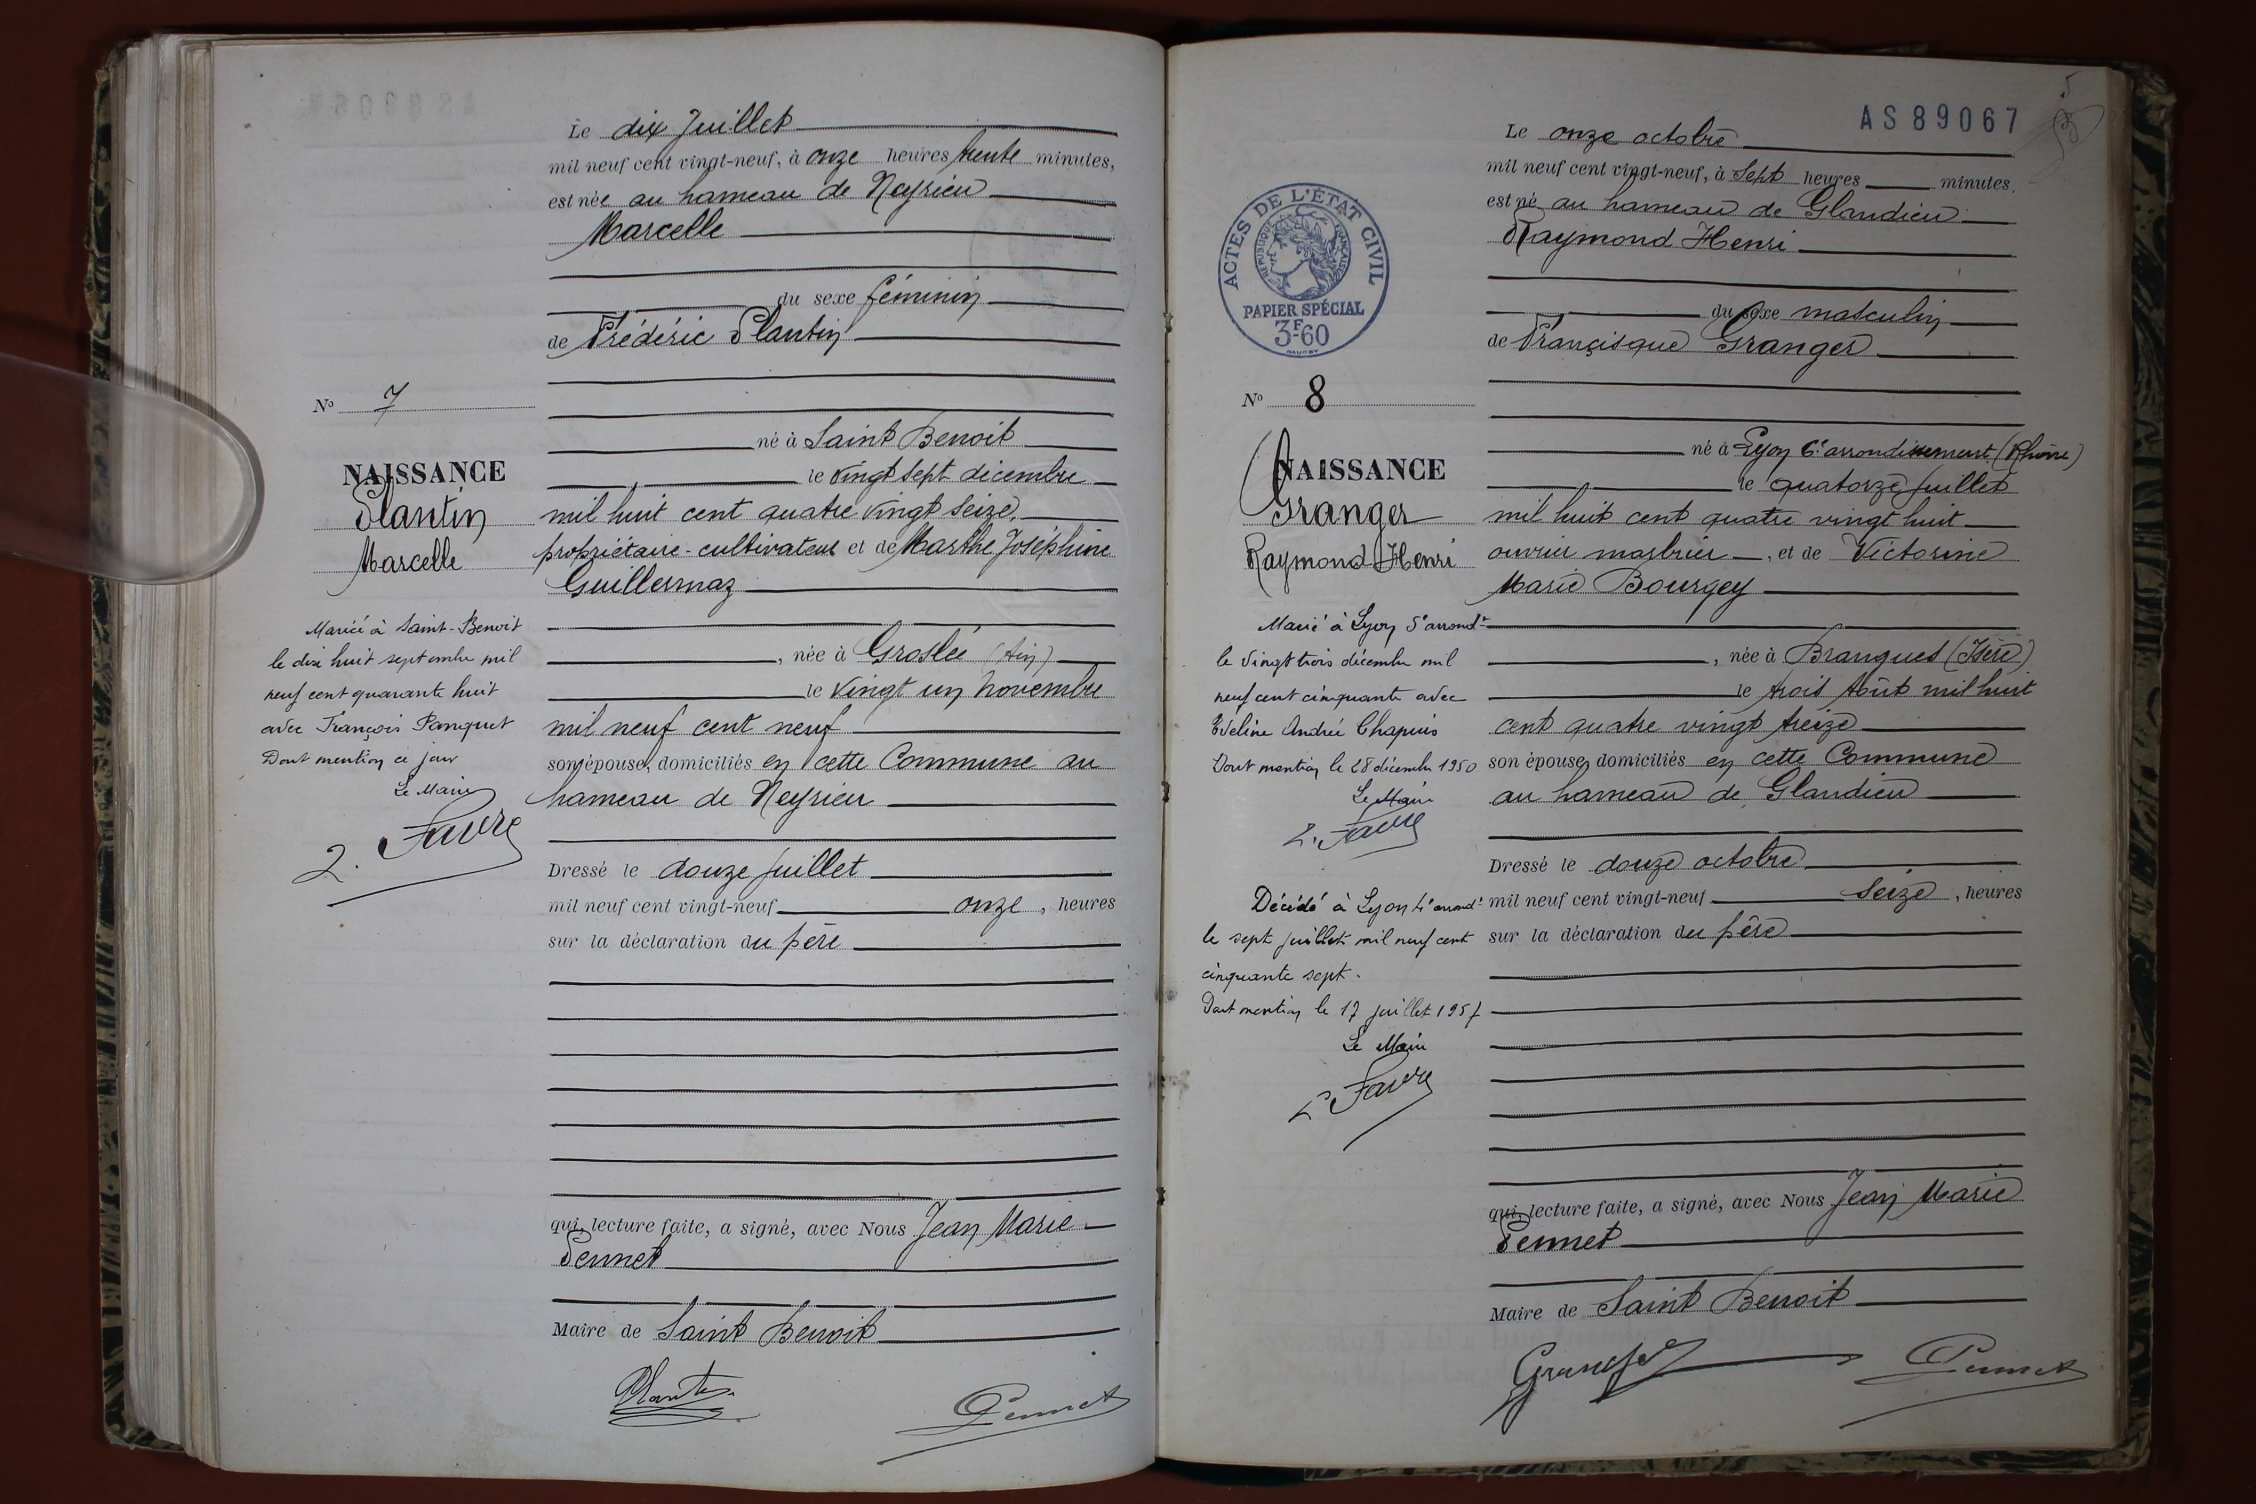 Le dix Juillet
mil neuf cent vingt-neuf, à onze heures trente minutes,
est née au hameau de Neyrieu
Marcelle
du sexe féminin
de Frédéric Plantin
No 7
né à Saint Benoit
NAISSANCE
le vingt sept décembre
Plantin
mil huit cent quatre vingt seize,
Marcelle
propriétaire-cultivateur et de Marthe Joséphine
Guillermaz
Mariée à Saint-Benoit
le dix huit septembre mil
neuf cent quarante huit
avec François Panquet
Dont mention ce jour
Le Maire
L. Favre
, née à Groslée (Ain)
le vingt un Novembre
mil neuf cent neuf
son épouse, domiciliés en cette Commune au
hameau de Neyrieu
Dressé le douze juillet
mil neuf cent vingt-neuf onze, heures
sur la déclaration du père
qui, lecture faite, a signé, avec Nous Jean Marie
Pennet
Maire de Saint Benoit
Plantin
Pennet
AS89067
5
Le onze octobre
mil neuf cent vingt-neuf, à sept heures minutes,
est né au hameau de Glandieu
Raymond Henri
ACTES DE L'ÉTAT CIVIL
RÉPUBLIQUE FRANÇAISE
PAPIER SPÉCIAL
3F60
du sexe masculin
de Françisque Granger
No 8
né à Lyon 6e arrondissement (Rhône)
NAISSANCE
le quatorze juillet
Granger
mil huit cent quatre vingt huit
Raymond Henri
ouvrier marbrier, et de Victorine
Marie Bourgey
Marié à Lyon 5e arrondt
le vingt trois décembre mil
neuf cent cinquante avec
Eveline Andrée Chapuis
Dont mention le 28 décembre 1950
Le Maire
L. Favre
, née à Brangues (Isère)
le trois Août mil huit
cent quatre vingt treize
son épouse, domiciliés en cette Commune
au hameau de Glandieu
Dressé le douze octobre
mil neuf cent vingt-neuf seize, heures
sur la déclaration du père
Décédé à Lyon 4e arrondt
le sept juillet mil neuf cent
cinquante sept.
Dont mention le 17 juillet 1957
Le Maire
L. Favre
qui, lecture faite, a signé, avec Nous Jean Marie
Pennet
Maire de Saint Benoit
Granger
Pennet